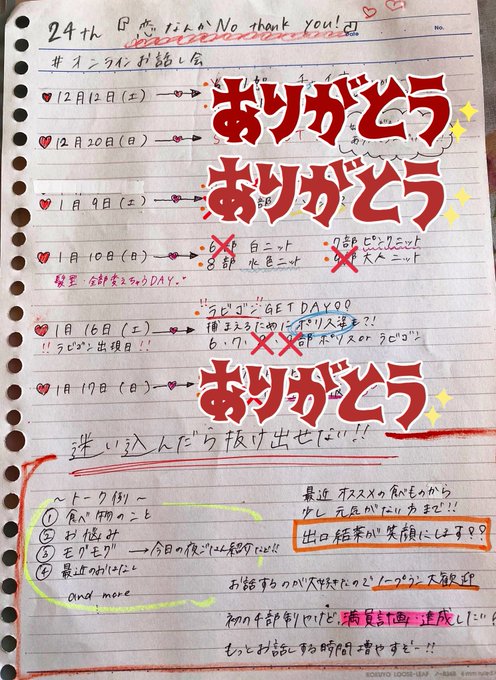 24th『恋なんかNo thank you!』
Date
No.
#オンラインお話し会
12月12日(土)
ありがとう
12月20日(日)
ありがとう
1月9日(土)
1月10日(日)
6部 白ニット 7部 ピンクニット
8部 水色ニット 大人ニット
髪型・全部変えちゃうDAY
ラビゴンGETDAY
1月16日(土)
捕まえるためにポリス姿も?!
!!ラビゴン出現日!!
6・7・ 部 ポリス or ラビゴン
1月17日(日)
ありがとう
迷い込んだら抜け出せない!!
〜トーク例〜
① 食べ物のこと
② お悩み
③ モグモグ → 今日の夜ごはん紹介など!!
④ 最近のおはなし
and more
最近オススメの食べものから
少し元気がない方まで!!
出口結菜が笑顔にします??
お話するのが大好きなのでノープラン大歓迎
初の4部制やけど、満員計画・達成したい!
もっとお話しする時間増やすぞー!!
KOKUYO LOOSE-LEAF